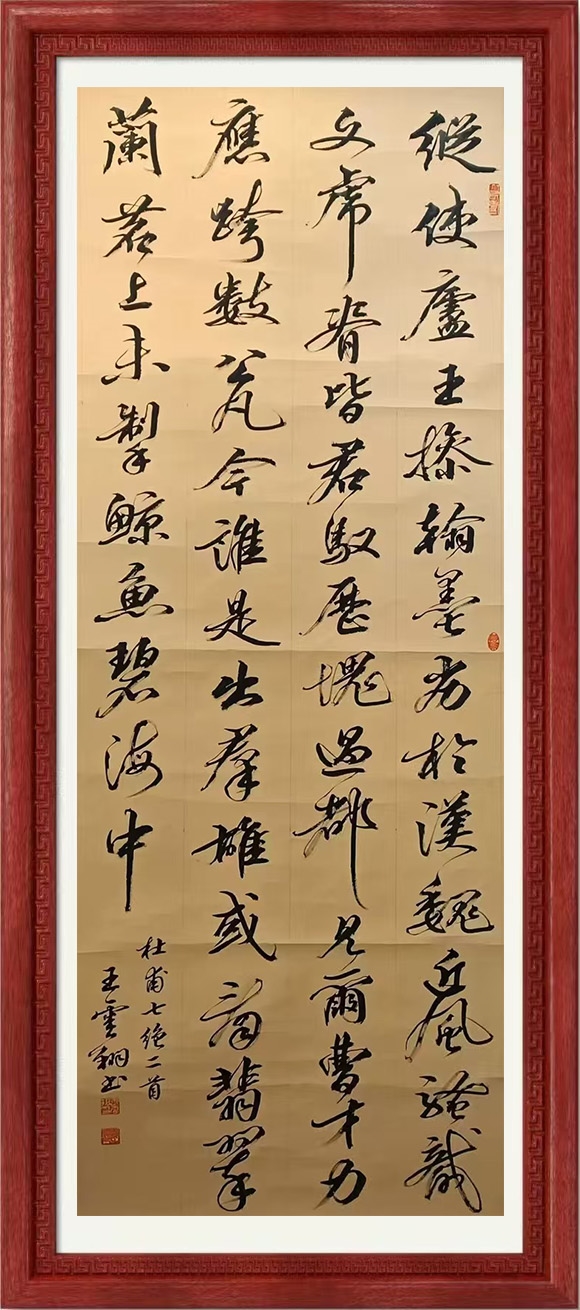 縱使盧王操翰墨劣於漢魏近風騷龍
文虎脊皆君馭歷塊過都見爾曹才力
應跨數公凡今誰是出羣雄或看翡翠
蘭苕上未掣鯨魚碧海中
杜甫七絕二首
王雲翔書